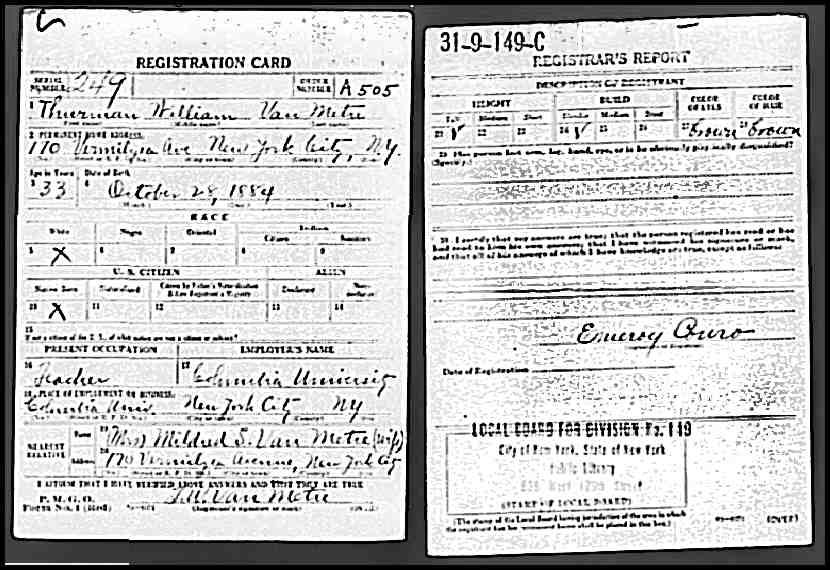 REGISTRATION CARD
SERIAL NUMBER 249 ORDER NUMBER A505
1 Thurman William Van Metre
2 PERMANENT HOME ADDRESS:
170 Vermilyea Ave New York City, NY.
Age in Years Date of Birth
3 33 4 October 28, 1884
(Month) (Day) (Year)
RACE
White Negro Oriental Indian
Citizen
5 X 6 7 8 9
U. S. CITIZEN ALIEN
Native Born Naturalized Citizen by Father's Naturalization Declarant Non-declarant
10 X 11 12 13 14
15
If not a citizen of the U. S., of what nation are you a citizen or subject?
PRESENT OCCUPATION EMPLOYER'S NAME
16 Teacher 17 Columbia University
18 PLACE OF EMPLOYMENT OR BUSINESS:
Columbia Univ. New York City NY
NEAREST RELATIVE
Name 19 Mrs Mildred S. Van Metre (wife)
Address 20 170 Vermilyea Avenue, New York City
I AFFIRM THAT I HAVE VERIFIED ABOVE ANSWERS AND THAT THEY ARE TRUE
P. M. G. O.
Form No. 1 (Red) T.W. Van Metre
(Registrant's signature or mark)
31-9-149-C
REGISTRAR'S REPORT
DESCRIPTION OF REGISTRANT
HEIGHT BUILD COLOR OF EYES COLOR OF HAIR
Tall Medium Short Slender Medium Stout
21 ✓ 22 23 24 ✓ 25 26 27 Brown Brown
29 Has person lost arm, leg, hand, eye, or is he obviously physically disqualified?
(Specify.)
30. I certify that my answers are true; that the person registered has read or has
had read to him his own answers; that I have witnessed his signature or mark,
and that all of his answers of which I have knowledge are true, except as follows:
Date of Registration
LOCAL BOARD FOR DIVISION No. 149
City of New York, State of New York
Public Library
(STAMP OF LOCAL BOARD)
(The stamp of the Local Board having jurisdiction of the area in which
the registrant has his permanent home shall be placed in this box.)